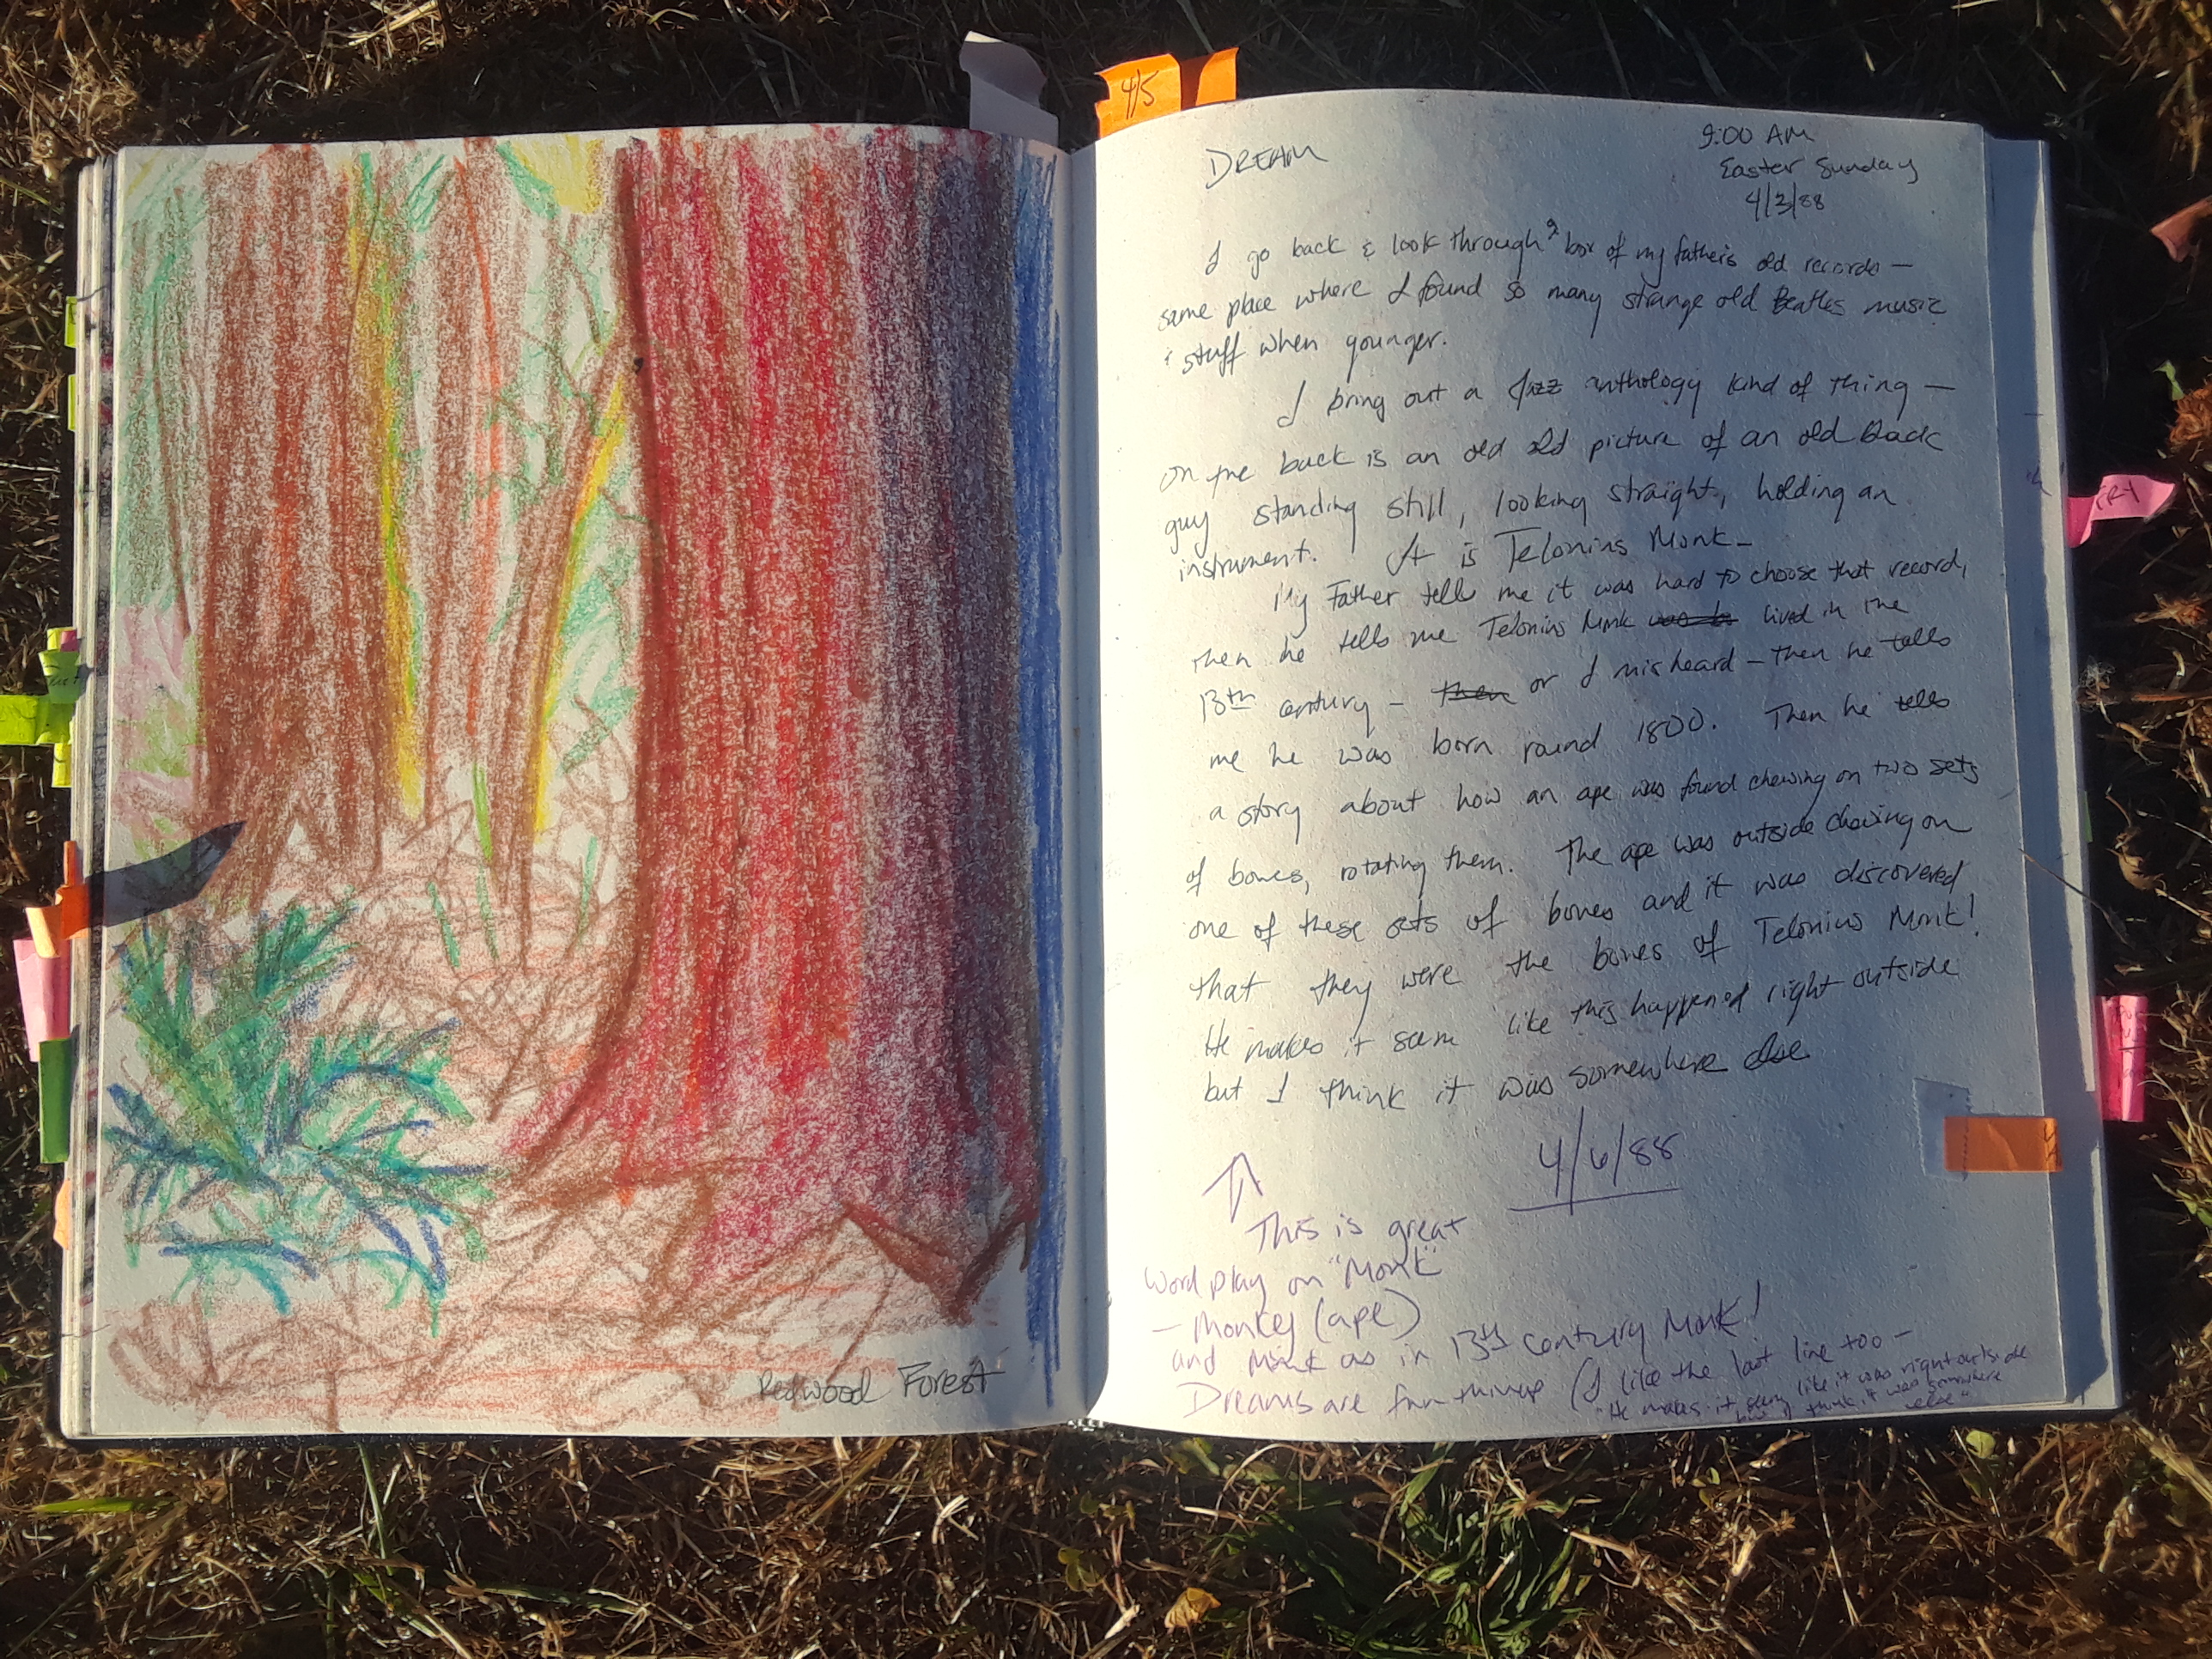 4/5
Redwood Forest
DREAM
9:00 AM
Easter Sunday
4/3/88
I go back & look through a box of my father's old records —
same place where I found so many strange old Beatles music
& stuff when younger.
I bring out a Jazz anthology kind of thing —
on the back is an old old picture of an old Black
guy standing still, looking straight, holding an
instrument. It is Telonius Monk —
My Father tells me it was hard to choose that record,
then he tells me Telonius Monk lived in the
13th century - then or I misheard - then he tells
me he was born round 1800. Then he tells
a story about how an ape was found chewing on two sets
of bones, rotating them. The ape was outside chewing on
one of these sets of bones and it was discovered
that they were the bones of Telonius Monk!
He makes it seem like this happened right outside
but I think it was somewhere else
4/6/88
↑
This is great
word play on "Monk"
— Monkey (ape)
and Monk as in 13th century Monk!
Dreams are fun things (I like the last line too —
"He makes it seem like it was right outside
but I think it was somewhere
else"